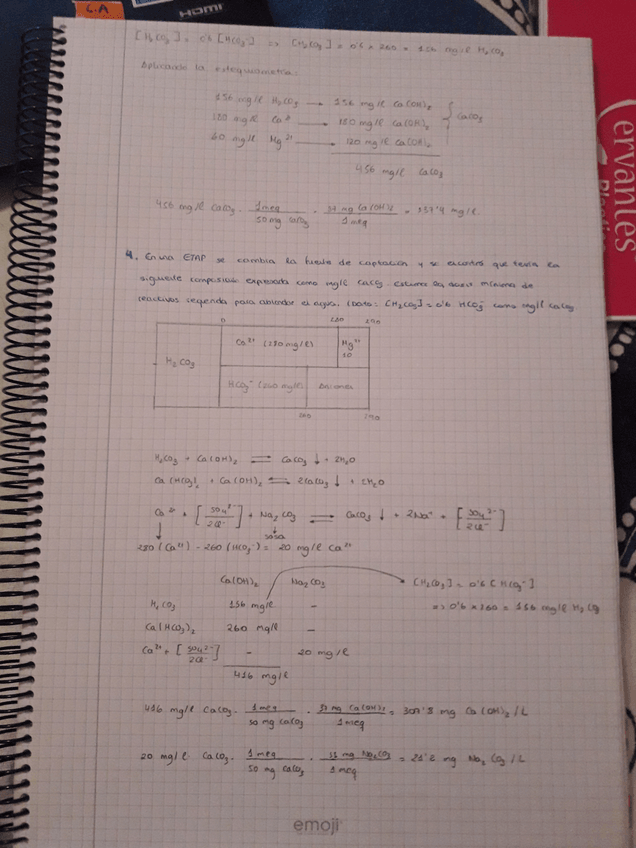 L.A
HDMI
[H₂CO₃] = 0'6 [HCO₃⁻] => [H₂CO₃] = 0'6 × 260 = 156 mg/l H₂CO₃
Aplicando la estequiometría:
156 mg/l H₂CO₃ → 156 mg/l Ca(OH)₂
180 mg/l Ca²⁺ → 180 mg/l Ca(OH)₂ } CaCO₃
60 mg/l Mg²⁺ → 120 mg/l Ca(OH)₂
456 mg/l CaCO₃
456 mg/l CaCO₃ · 1 meq / 50 mg CaCO₃ · 37 mg Ca(OH)₂ / 1 meq = 337'4 mg/l
4. En una ETAP se cambia la fuente de captación y se encontró que tenía la
siguiente composición expresada como mg/l CaCO₃. Estima las dosis mínima de
reactivos requerida para ablandar el agua. (Dato: [H₂CO₃] = 0'6 HCO₃⁻ como mg/l CaCO₃
0 280 290
H₂CO₃ Ca²⁺ (280 mg/l) Mg²⁺ 10
HCO₃⁻ (260 mg/l)
260 290
H₂CO₃ + Ca(OH)₂ ⇌ CaCO₃ ↓ + 2H₂O
Ca(HCO₃)₂ + Ca(OH)₂ ⇌ 2CaCO₃ ↓ + 2H₂O
Ca²⁺ + [SO₄²⁻ / 2Cl⁻] + Na₂CO₃ ⇌ CaCO₃ ↓ + 2Na⁺ + [SO₄²⁻ / 2Cl⁻]
sosa
280 (Ca²⁺) - 260 (HCO₃⁻) = 20 mg/l Ca²⁺
Ca(OH)₂ Na₂CO₃ [H₂CO₃] = 0'6 [HCO₃⁻]
H₂CO₃ 156 mg/l - => 0'6 × 260 = 156 mg/l H₂CO₃
Ca(HCO₃)₂ 260 mg/l -
Ca²⁺ + [SO₄²⁻ / 2Cl⁻] - 20 mg/l
416 mg/l
416 mg/l CaCO₃ · 1 meq / 50 mg CaCO₃ · 37 mg Ca(OH)₂ / 1 meq = 307'8 mg Ca(OH)₂/L
20 mg/l CaCO₃ · 1 meq / 50 mg CaCO₃ · 53 mg Na₂CO₃ / 1 meq = 21'2 mg Na₂CO₃/L
emoji
cervantes